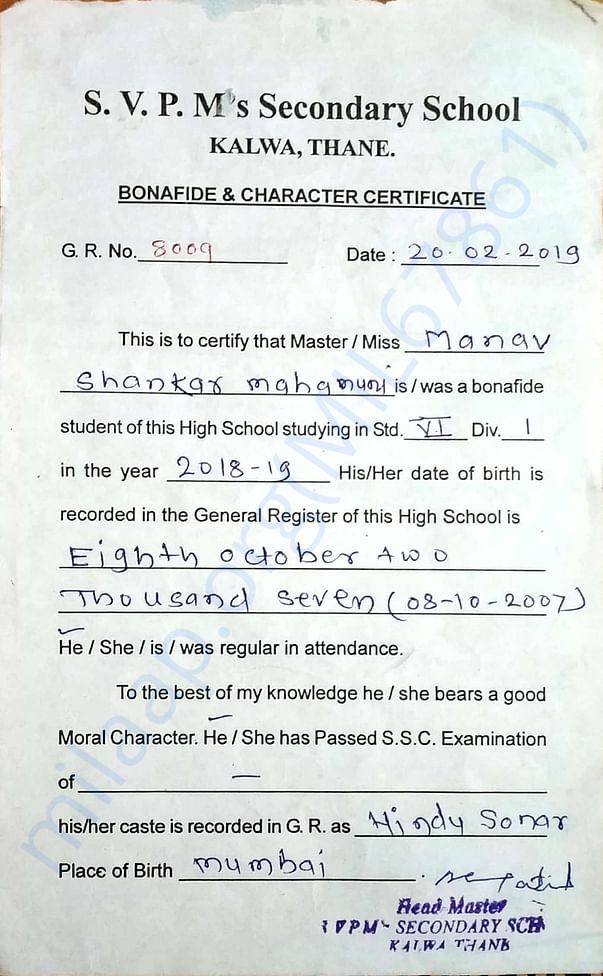 S. V. P. M's Secondary School
KALWA, THANE.
BONAFIDE & CHARACTER CERTIFICATE
G. R. No. 8009 Date : 20.02-2019
This is to certify that Master / Miss Manav
Shankar mahamuni is / was a bonafide
student of this High School studying in Std. VI Div. 1
in the year 2018-19 His/Her date of birth is
recorded in the General Register of this High School is
Eighth october two
Thousand seven (08-10-2007)
He / She / is / was regular in attendance.
To the best of my knowledge he / she bears a good
Moral Character. He / She has Passed S.S.C. Examination
of —
his/her caste is recorded in G. R. as Hindu Sonar
Place of Birth mumbai
Head Master
SECONDARY SCH
KALWA THANE
milaap.org(MIL_67861)